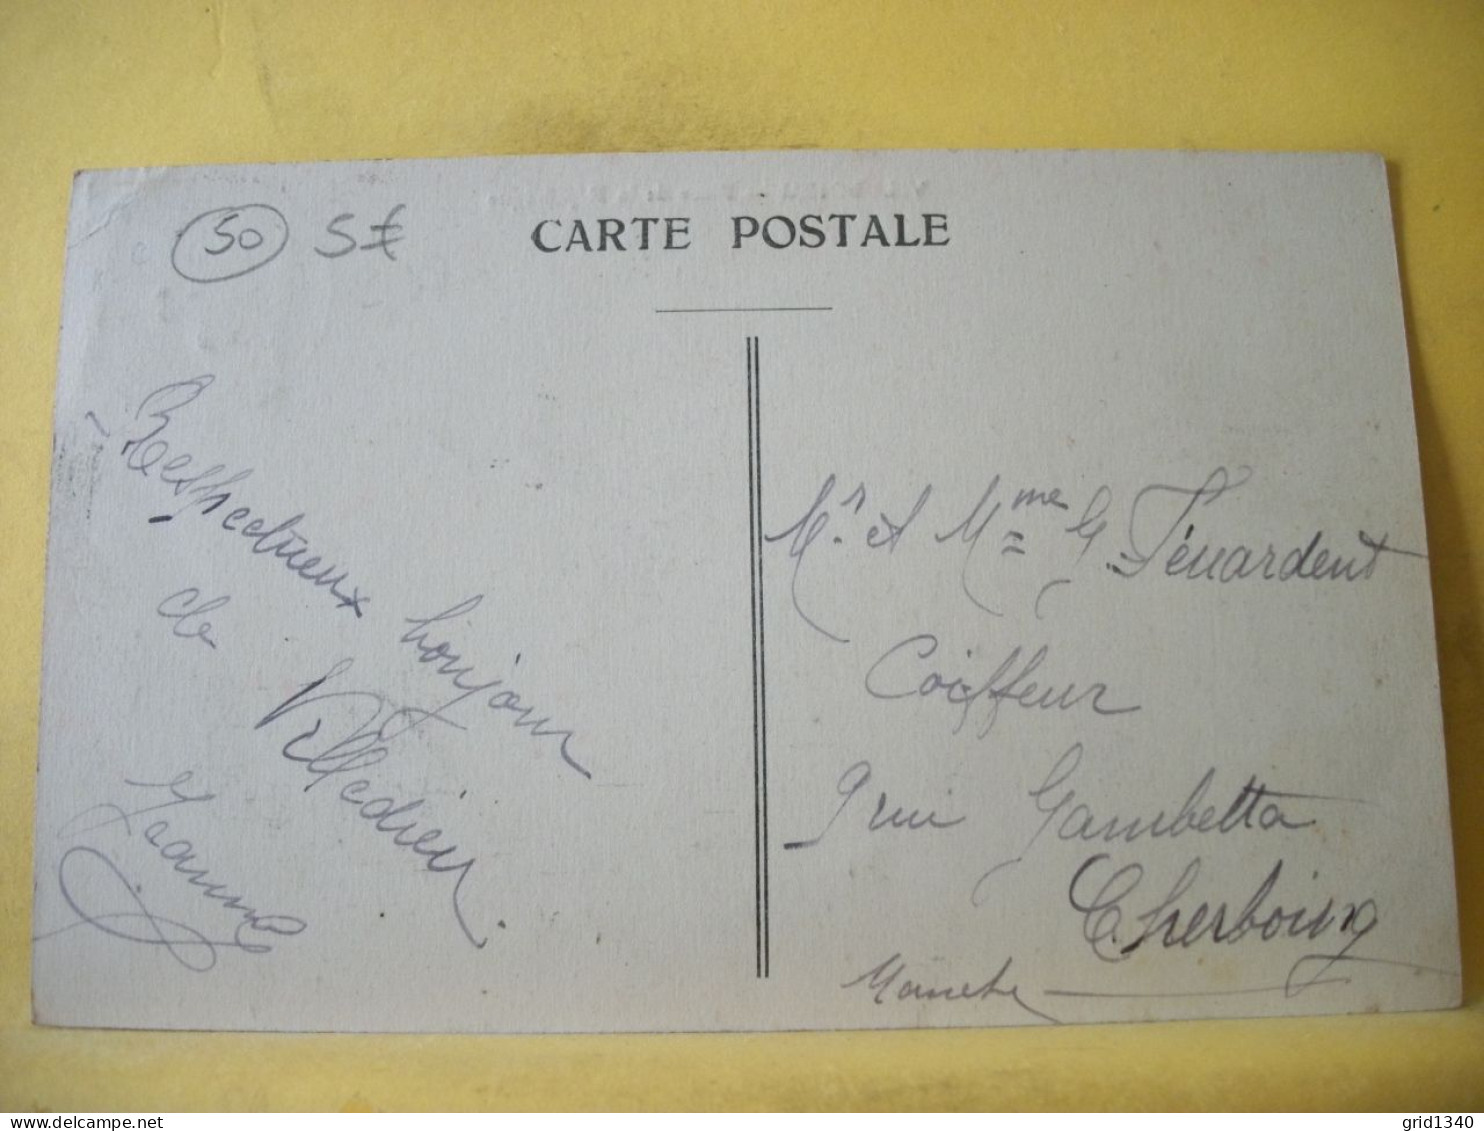 50 5€
CARTE POSTALE
Respectueux bonjour
de
Villedieu.
Jeanne
Mr. et Mme G. Fénardent
Coiffeur
9 rue Gambetta
Cherbourg
Manche
delcampe.net
grid1340